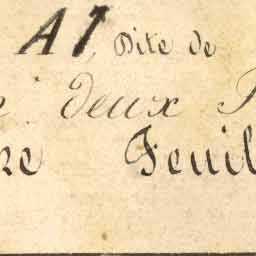 A1, Dite de
deux
re Feuil